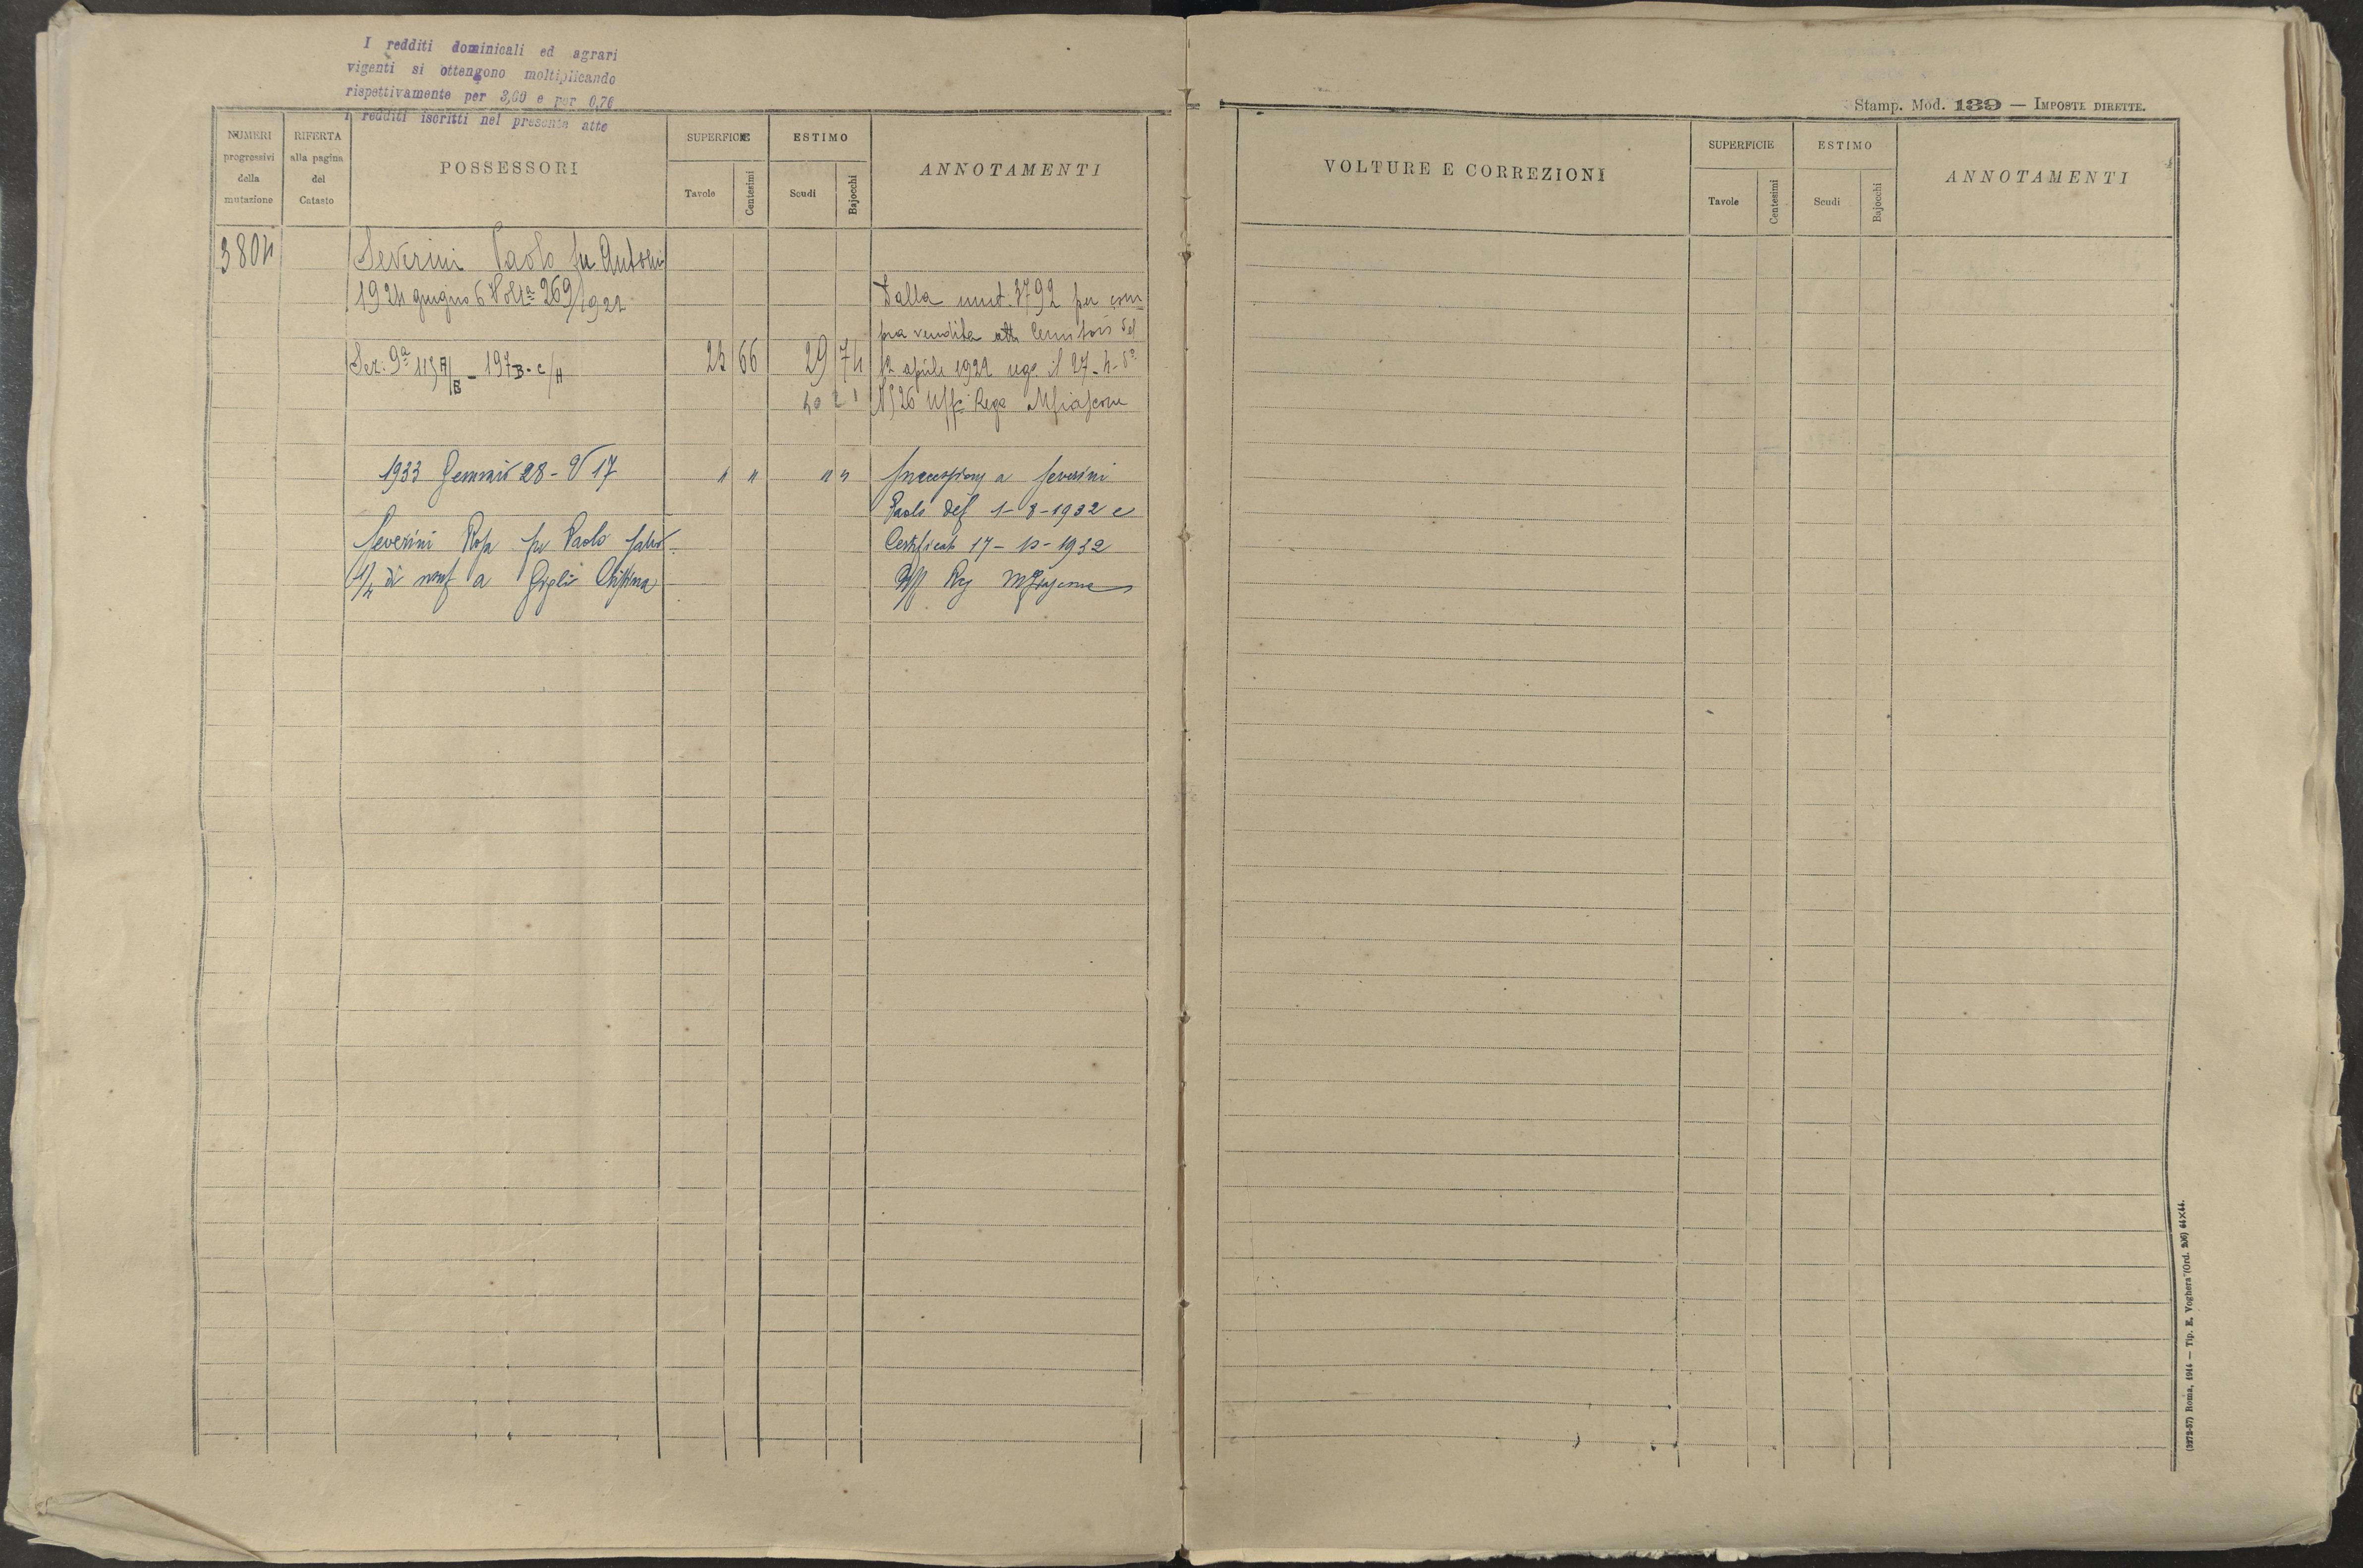 I redditi dominicali ed agrari
vigenti si ottengono moltiplicando
rispettivamente per 3,60 e per 0,70
i redditi iscritti nel presente atto
NUMERI
progressivi
della
mutazione
RIFERTA
alla pagina
del
Catasto
POSSESSORI
SUPERFICIE
Tavole
Centesimi
ESTIMO
Scudi
Bajocchi
ANNOTAMENTI
3804
Severini Paolo fu Antonio
1924 giugno 6 Volta 269/1922
Dalla mut. 3792 per com
pra vendita atto del
Sez: 9ª 115A/B - 197B-C/H
23 66
29 74
12 aprile 1922 reg il 27-4-
N 526 Uff Reg Mfiascone
1933 Gennaio 28 - V 17
" "
" "
Successione a Severini
Paolo def 1-8-1932 e
Severini Rosa fu Paolo
Certificato 17-10-1932
1/4 di usuf a Gigli Cristina
Uff Reg Mfiascone
Stamp. Mod. 139 — IMPOSTE DIRETTE.
VOLTURE E CORREZIONI
SUPERFICIE
Tavole
Centesimi
ESTIMO
Scudi
Bajocchi
ANNOTAMENTI
(3272-57) Roma, 1914 — Tip. E. Voghera (Ord. 206) 44×44.